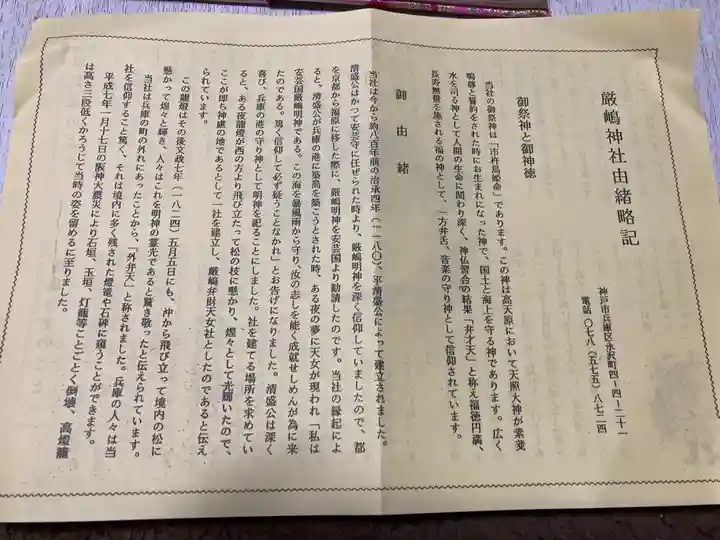 厳嶋神社由緒略記
神戸市兵庫区永沢町四-四-二十一
電話〇七八(五七五)八七二四
御祭神と御神徳
当社の御祭神は「市杵島姫命」であります。この神は高天原において天照大神が素戔
嗚尊と誓約をされた時にお生まれになった神で、国土と海上を守る神であります。広く
水を司る神として人間の生命に関わり深く、神仏習合の結果「弁才天」と称え福徳円満、
長寿無量を施される福の神として、一方弁舌、音楽の守り神として信仰されています。
御由緒
当社は今から約八百年前の治承四年(一一八〇)、平清盛公によって建立されました。
清盛公はかつて安芸守に任ぜられた時より、厳嶋明神を深く信仰していましたので、都
を京都から福原に移した際に、厳嶋明神を安芸国より勧請したのです。当社の縁起によ
ると、清盛公が兵庫の港に築島を築こうとされた時、ある夜の夢に天女が現われ「私は
安芸国厳嶋明神である。この海を暴風雨から守り、汝の志しを能く成就せしめんが為に来
たのである。篤く信仰して必ず疑うことなかれ」とお告げになりました。清盛公は深く
喜び、兵庫の港の守り神として明神を祀ることにしました。社を建てる場所を求めてい
ると、ある夜龍燈が西の方より飛び立って松の枝に懸かり、煌々として光り輝いたので、
ここが即ち神慮の地であるとして一社を建立し、厳嶋弁財天女社としたのであると伝え
られています。
この龍燈はその後文政七年(一八二四)五月五日にも、沖から飛び立って境内の松に
懸かって煌々と輝き、人々はこれを明神の霊光であると驚き敬ったと伝えられています。
当社は兵庫の町の外れにあったことから、「外弁天」と称されました。兵庫の人々は当
社を信仰すること篤く、それは境内に多く残された燈篭や石碑に窺うことができます。
平成七年一月十七日の阪神大震災により石垣、玉垣、灯籠等ことごとく倒壊、高燈籠
は高さ三段低くかろうじて当時の姿を留めるに至りました。